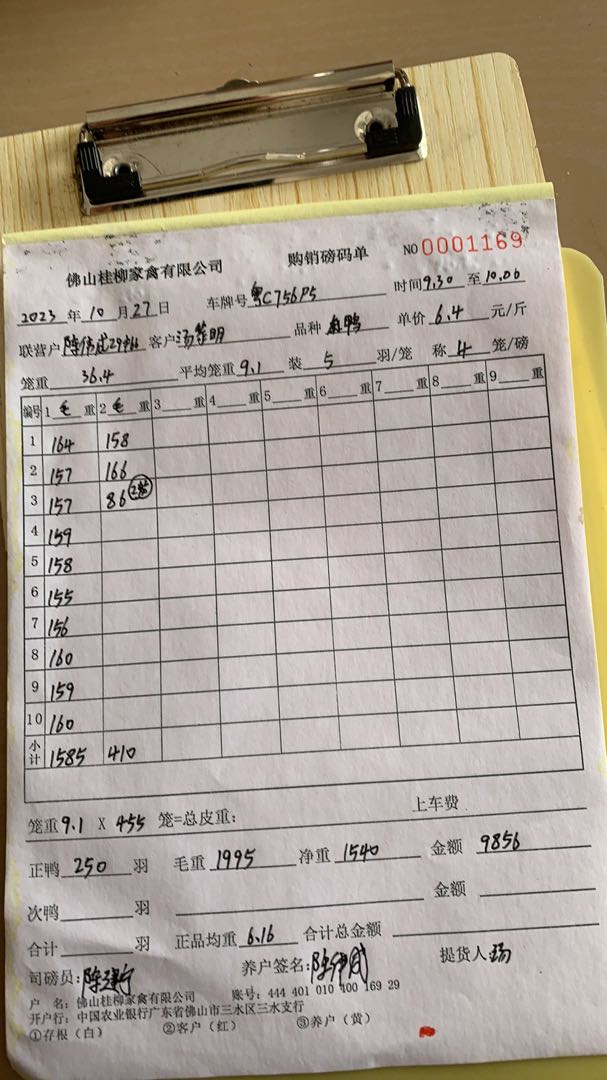 佛山桂柳家禽有限公司 购销磅码单 NO 0001169
2023 年 10 月 27 日 车牌号 粤C756P5 时间 9.30 至 10.00
联营户 客户 品种 鸭 单价 6.4 元/斤
笼重 36.4 平均笼重 9.1 装 5 羽/笼 称 4 笼/磅
编号 1 毛 重 2 毛 重 3 重 4 重 5 重 6 重 7 重 8 重 9 重
1 164 158
2 157 166
3 157 86
4 159
5 158
6 155
7 156
8 160
9 159
10 160
小计 1585 410
笼重 9.1 X 455 笼=总皮重: 上车费
正鸭 250 羽 毛重 1995 净重 1540 金额 9856
次鸭 羽 金额
合计 羽 正品均重 6.16 合计总金额
司磅员: 养户签名: 提货人
户 名: 佛山桂柳家禽有限公司 账号: 444 401 010 400 169 29
开户行: 中国农业银行广东省佛山市三水区三水支行
①存根(白) ②客户(红) ③养户(黄)